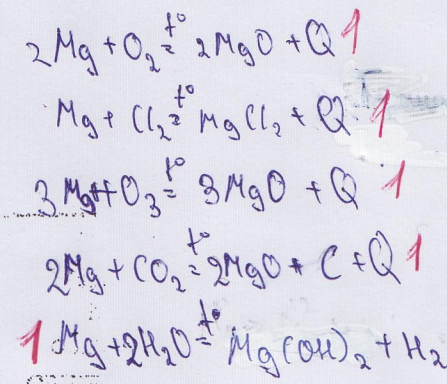 2Mg + O₂ =t° 2MgO + Q 1
Mg + Cl₂ =t° MgCl₂ + Q 1
3Mg + O₃ =t° 3MgO + Q 1
2Mg + CO₂ =t° 2MgO + C + Q 1
1 Mg + 2H₂O =t° Mg(OH)₂ + H₂